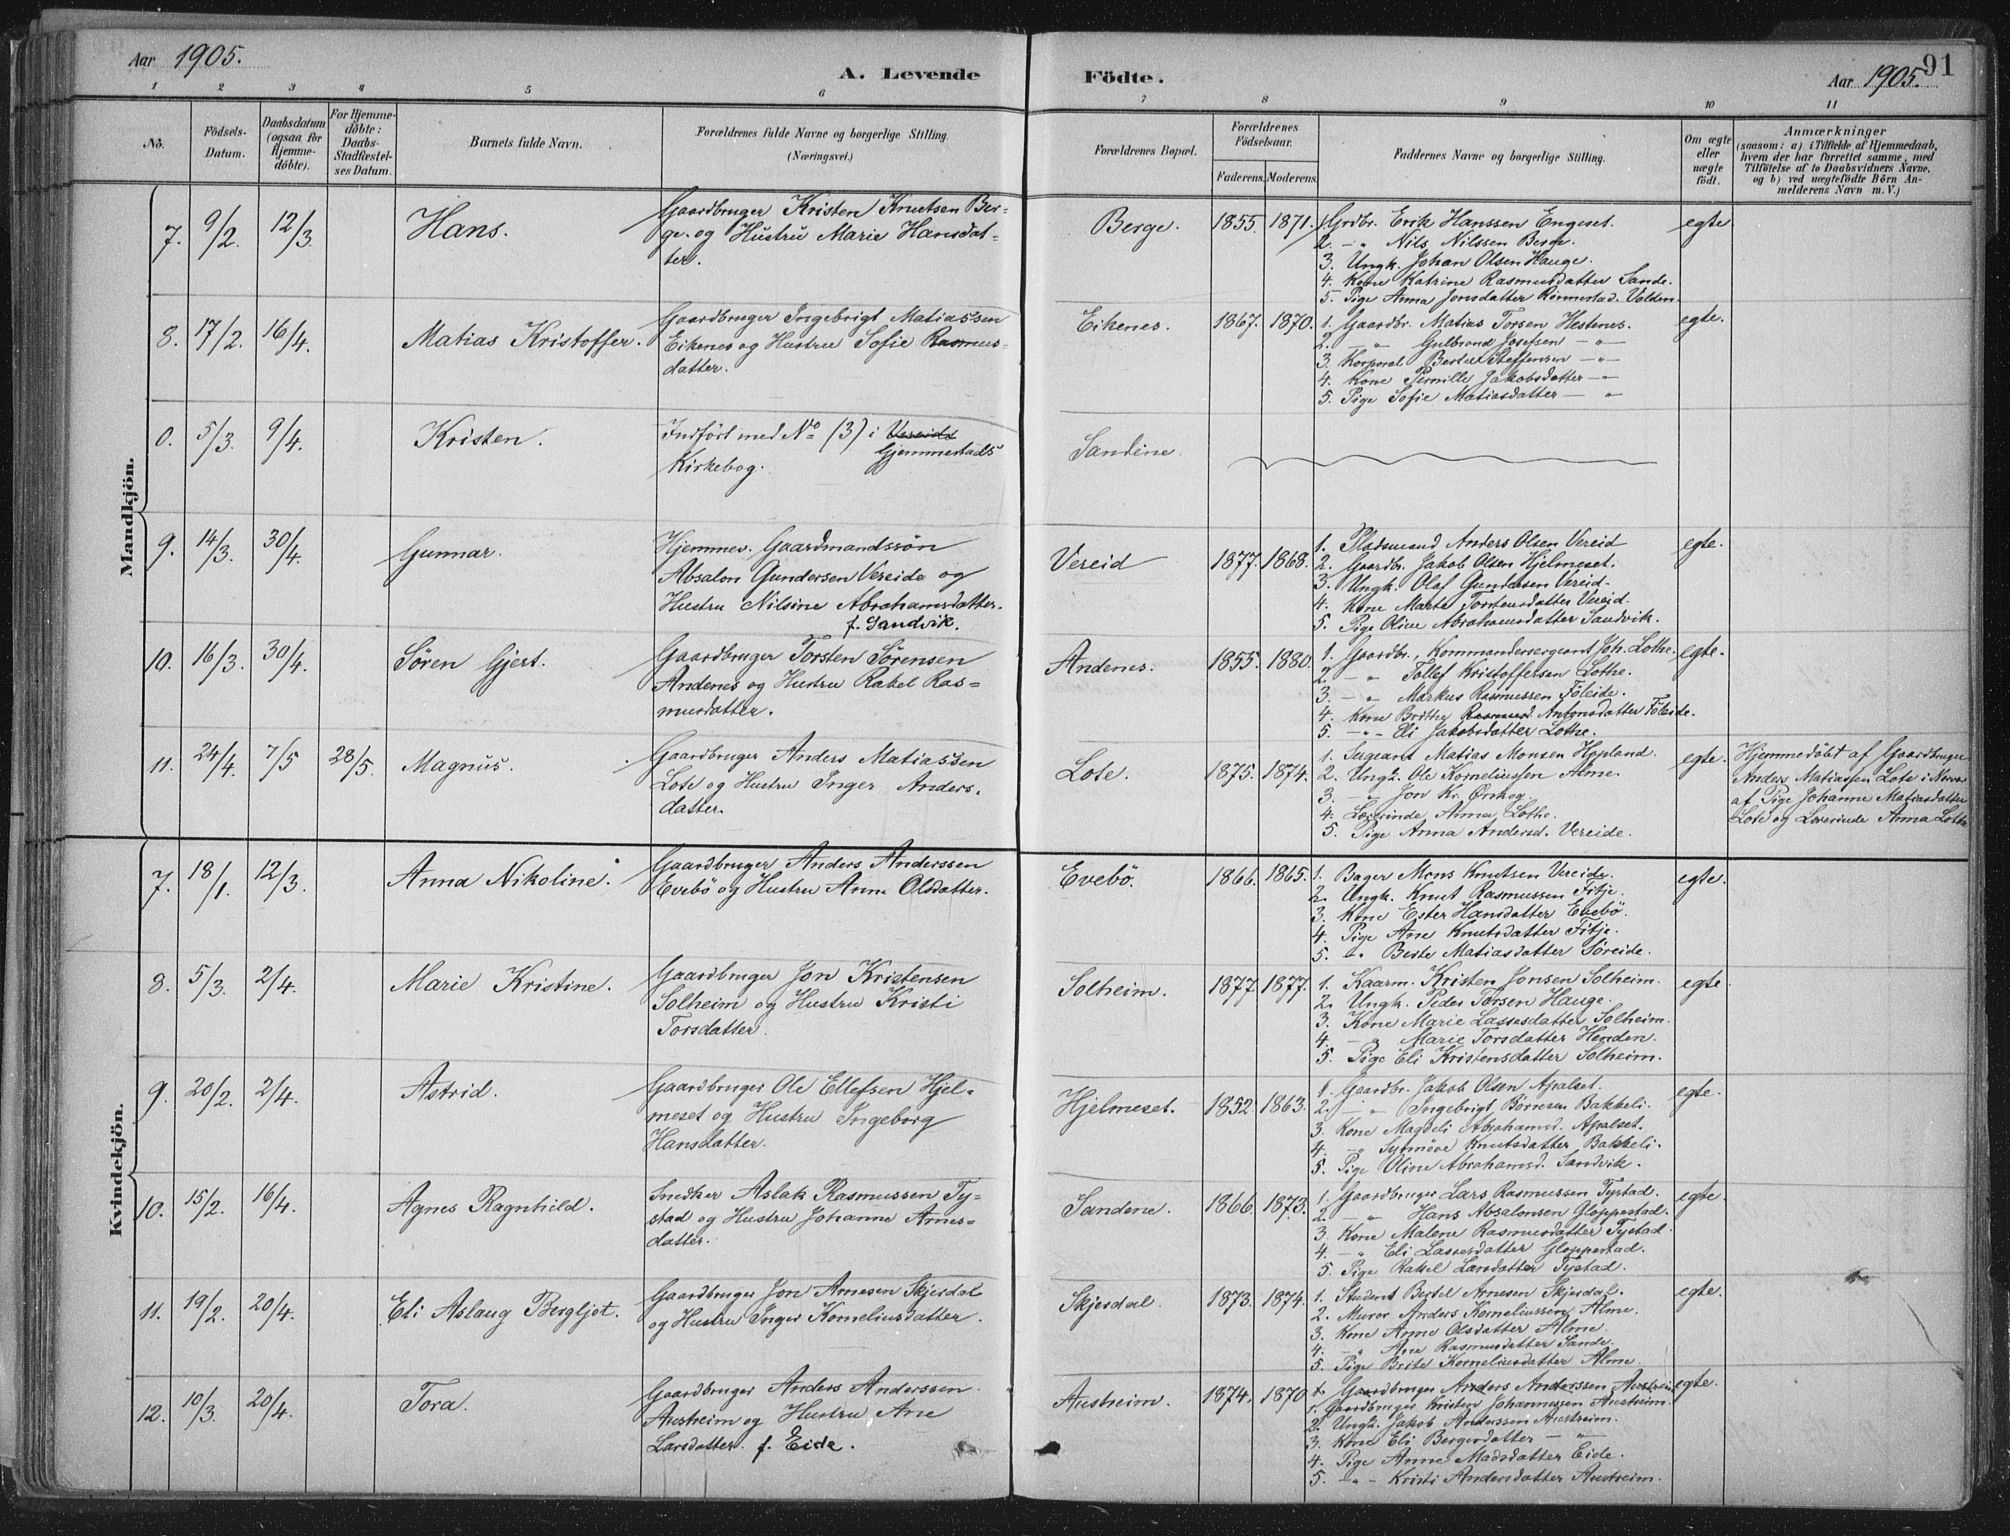 Aar 1905.
A. Levende
1 2 3 4 5 6
No.
Födsels-Datum.
Daabsdatum (ogsaa for Hjemme-döbte).
For Hjemme-döbte: Daabs-Stadfæstel-ses Datum.
Barnets fulde Navn.
Forældrenes fulde Navne og borgerlige Stilling.
(Næringsvei.)
Födte.
91
Aar 1905.
7 8 9 10 11
Forældrenes Bopæl.
Forældrenes Födselsaar.
Faderens. Moderens.
Faddernes Navne og borgerlige Stilling.
Om ægte eller uægte födt.
Anmærkninger
(saasom: a) i Tilfælde af Hjemmedaab,
hvem der har forrettet samme, med
Tilföielse af to Daabsvidners Navne,
og b) ved uægtefödte Börn An-
melderens Navn m. V.)
Mandkjön.
7. 9/2. 12/3. Hans.
Gaardbruger Kristen Knutsen Ber-
ge. og Hustru Marie Hansdat-
ter.
Berge. 1855. 1871.
1. Grdbr. Erik Hanssen Engeset. egte.
2. — " Nils Nilssen Berge.
3. Ungk. Johan Olsen Hauge.
4. Kone Katrine Rasmusdatter Sande.
5. Pige Anna Jonsdatter Rönnestad. Volden.
8. 17/2. 16/4. Matias Kristoffer.
Gaardbruger Ingebrigt Matiassen
Eikenes og Hustru Sofie Rasmus-
datter.
Eikenes. 1867. 1870.
1. Gaardbr. Matias Torsen Hestenes. egte.
2. — " Gulbrand Josefsen — " —
3. Korporal Bertel Steffensen — " —
4. Kone Pernille Jakobsdatter — " —
5. Pige Sofie Matiasdatter — " —
0. 5/3. 9/4. Kristen.
Indfört med No (3) i Vereids
Gjemmestads
Kirkebog.
Sandene.
9. 14/3. 30/4. Gunnar.
Hjemmev. Gaardmandssön
Absalon Gundersen Vereide og
Hustru Nilsine Abrahamsdatter.
f. Sandvik.
Vereid 1877. 1868.
1. Pladsmand Anders Olsen Vereid egte.
2. Gaardbr. Jakob Olsen Hjelmeset.
3. Ungk. Olaf Gundersen Vereid.
4. Kone Marta Torstensdatter Vereid.
5. Pige Oline Abrahamsdatter Sandvik.
10. 16/3. 30/4. Sören Gjert.
Gaardbruger Torsten Sörensen
Andenes og Hustru Rakel Ras-
musdatter.
Andenes. 1855. 1880.
1. Gaardbr., Kommandersergeant Joh. Lothe. egte.
2. — " Tollef Kristoffersen Lothe.
3. — " Markus Rasmussen Föleide.
4. Kone Brithe Rasmusd. Antonsdatter Föleide.
5. — " — Eli Jakobsdatter Lothe.
11. 24/4. 7/5 28/5. Magnus.
Gaardbruger Anders Matiassen
Lote og Hustru Inger Anders-
datter.
Lote. 1875. 1874.
1. Sergeant Matias Monsen Hopland. egte.
2. Ungk. Ole Korneliussen Alme.
3. — " Jon Kr. Örskog.
4. Lærerinde Anna Lothe.
5. Pige Anna Andersd. Vereide.
Hjemmedöbt af Gaardbruger
Anders Matiassen Lote i Nærvær
af Pige Johanne Matiasdatter
Lote og Lærerinde Anna Lothe
Kvindekjön.
7. 18/1. 12/3. Anna Nikoline.
Gaardbruger Anders Anderssen
Evebö og Hustru Anne Olsdatter.
Evebö. 1866. 1865.
1. Bager Mons Knutsen Vereide. egte.
2. Ungk. Knut Rasmussen Fitje.
3. Kone Ester Hansdatter Evebö.
4. Pige Ane Knutsdatter Fitje.
5. " Berte Matiasdatter Söreide.
8. 5/3. 2/4. Marie Kristine.
Gaardbruger Jon Kristensen
Solheim og Hustru Kristi
Torsdatter.
Solheim. 1877. 1877.
1. Kaarm. Kristen Jonsen Solheim. egte.
2. Ungk. Peder Torsen Hauge.
3. Kone Marie Lassesdatter Solheim.
4. — " Marie Torsdatter Henden.
5. Pige Eli Kristensdatter Solheim.
9. 20/2. 2/4. Astrid.
Gaardbruger Ole Ellefsen Hjel-
meset og Hustru Ingeborg
Hansdatter.
Hjelmeset. 1852 1863.
1. Gaardbr. Jakob Olsen Apalset. egte.
2. — " Ingebrigt Börresen Bakkeli.
3. Kone Magdeli Abrahamsd. Apalset.
4. — " Synnöve Knutsdatter Bakkeli.
5. Pige Oline Abrahamsd. Sandvik.
10. 15/2. 16/4. Agnes Ragnhild.
Snedker Aslak Rasmussen Ty-
stad og Hustru Johanne Arnes-
datter.
Sandene. 1866. 1873.
1. Gaardbruger Lars Rasmussen Tystad. egte.
2. — " Hans Absalonsen Gloppestad.
3. Kone Malene Rasmusdatter Tystad.
4. — " Eli Lassesdatter Gloppestad.
5. Pige Rakel Larsdatter Tystad.
11. 19/2. 20/4. Eli Aslaug Bergljot.
Gaardbruger Jon Arnesen Skjerdal
og Hustru Inger Korneliusdatter.
Skjerdal. 1873. 1874.
1. Student Bertel Arnesen Skjerdal. egte.
2. Murer Anders Korneliussen Alme.
3. Kone Anne Olsdatter Alme.
4. — " Ane Rasmusdatter Sande.
5. Pige Brite Korneliusdatter Alme.
12. 10/3. 20/4. Tora.
Gaardbruger Anders Anderssen
Austreim og Hustru Ane
Larsdatter. f. Eide.
Austreim. 1874. 1870
1. Gaardbruger Anders Anderssen Austreim. egte.
1. Gaardbruger Kristen Johannessen Austreim.
2. Ungk. Jakob Anderssen Austreim.
3. Kone Eli Bergersdatter — " —
4. Pige Anne Madsdatter Eide.
5. — " — Kristi Andersdatter Austreim.